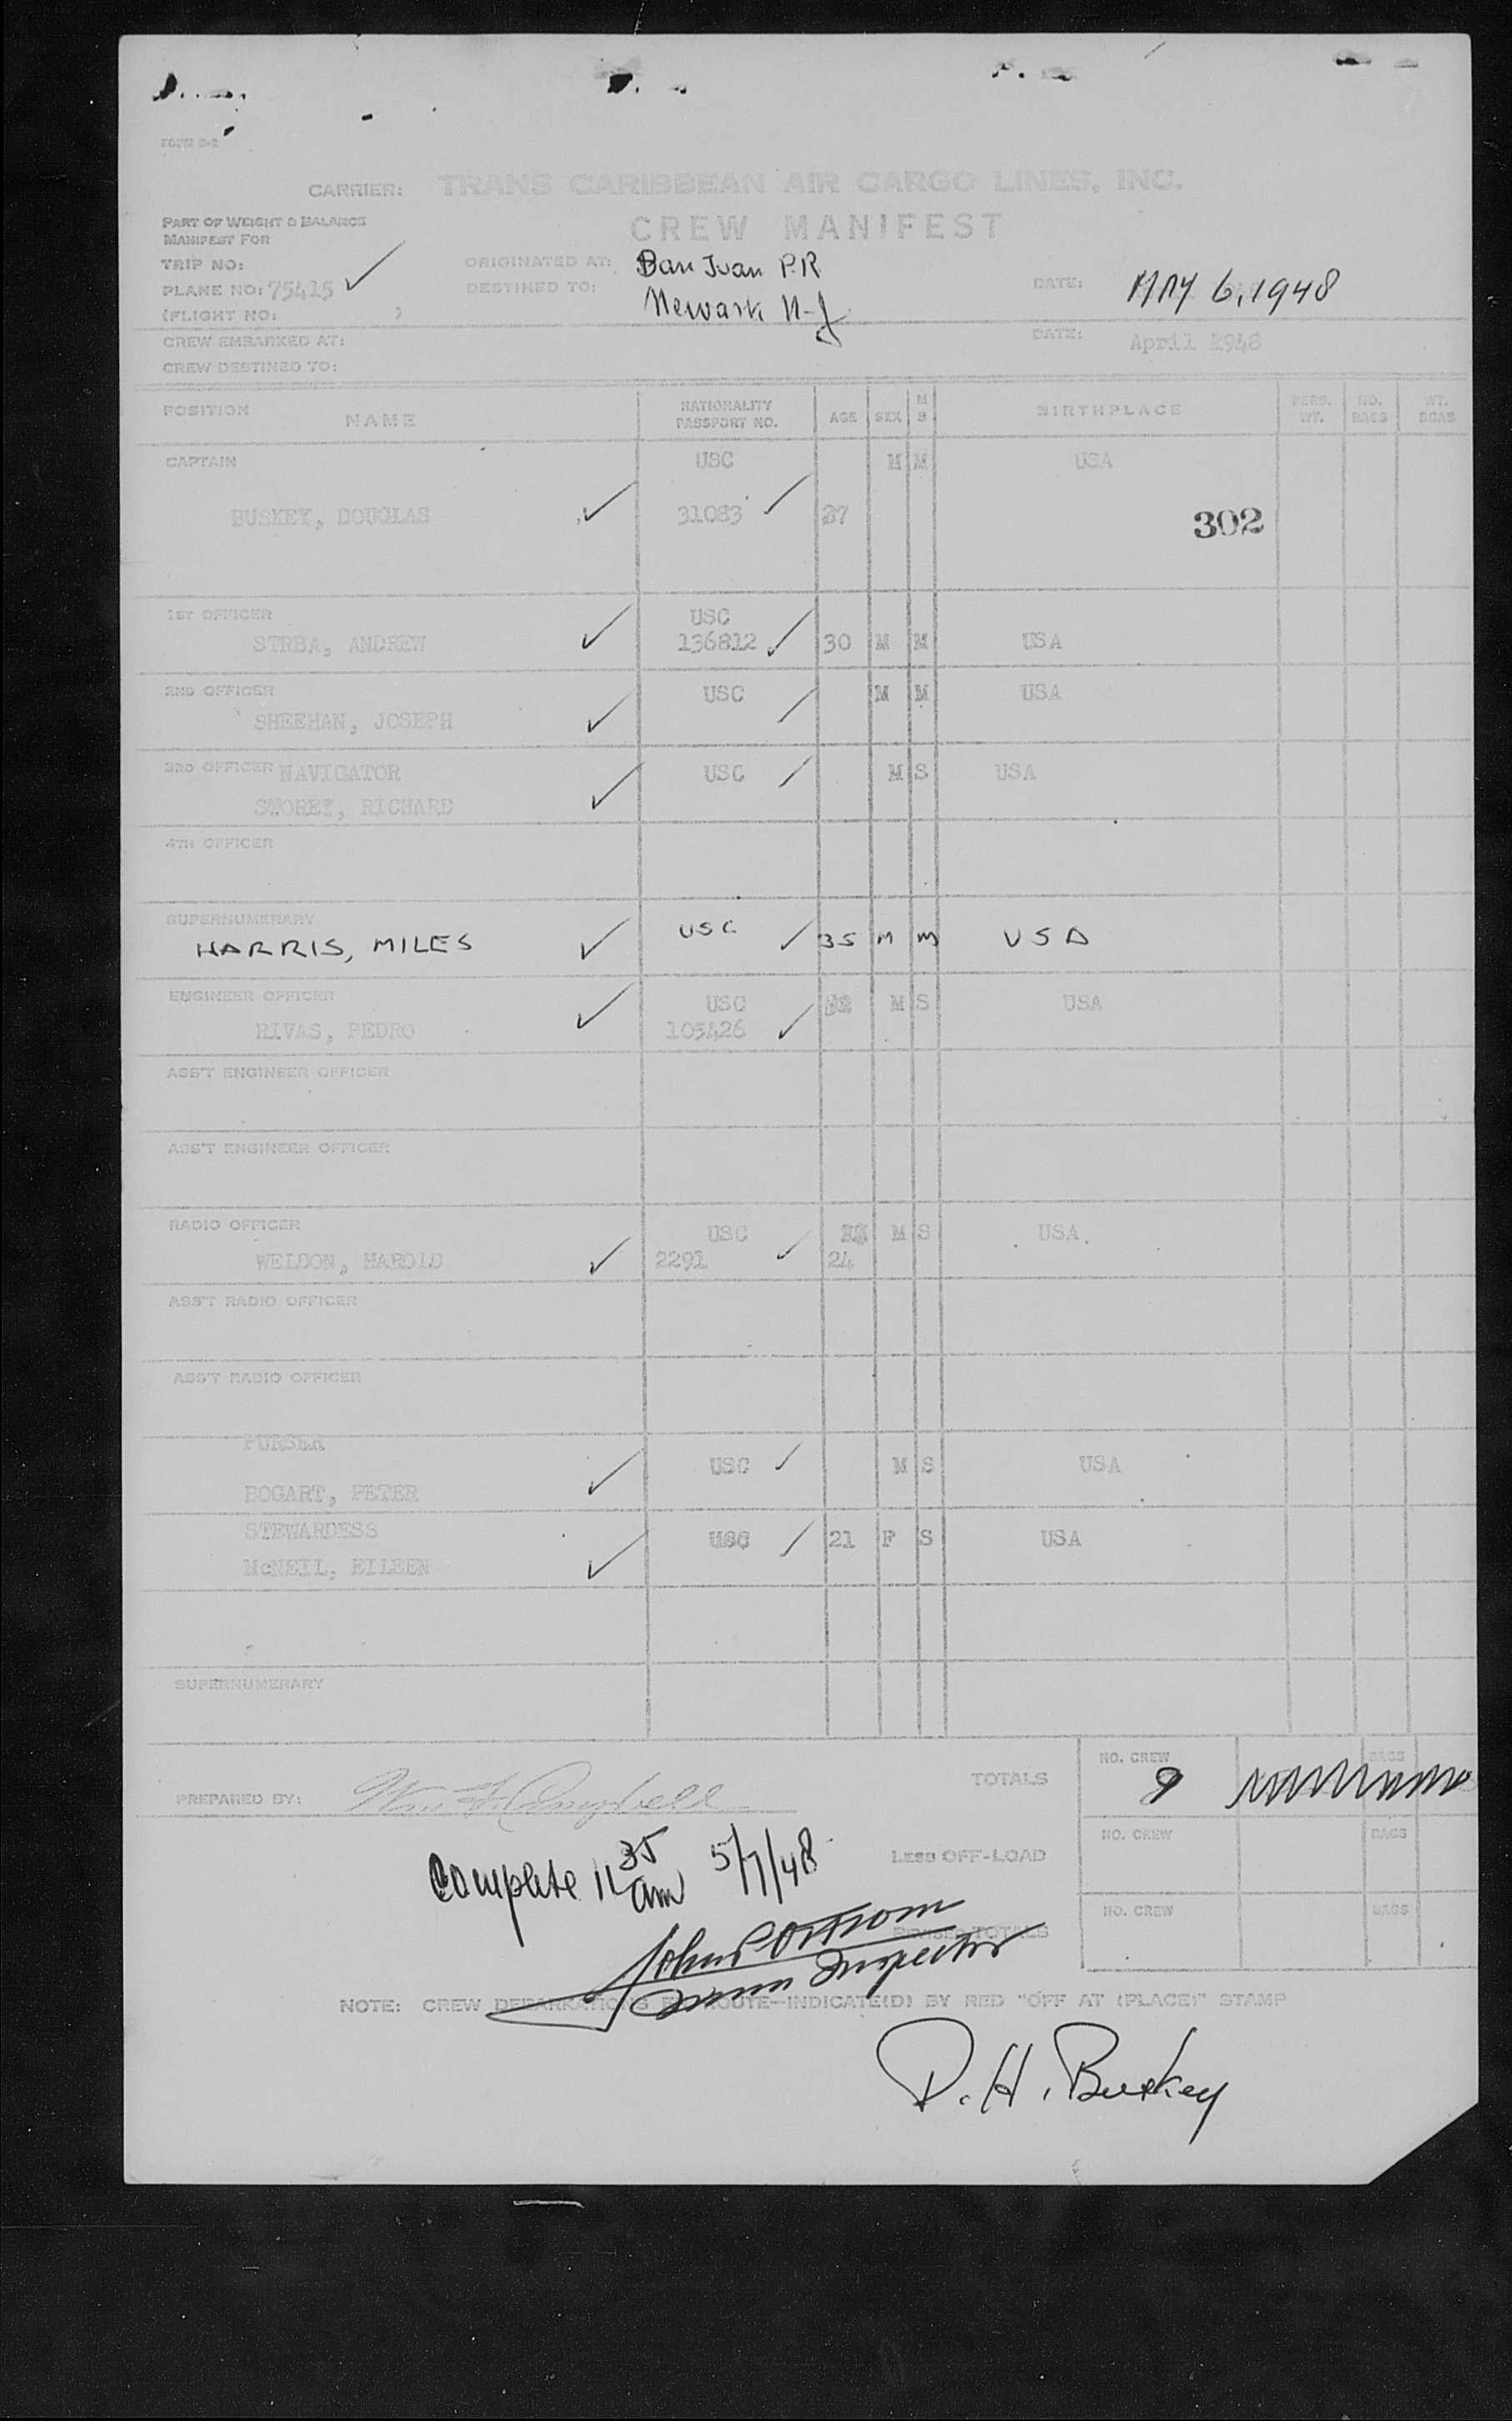 FORM 0-2
CARRIER: TRANS CARIBBEAN AIR CARGO LINES, INC.
PART OF WEIGHT & BALANCE
MANIFEST FOR
CREW MANIFEST
TRIP NO:
ORIGINATED AT: San Juan P.R
PLANE NO: 75415
DESTINED TO: Newark N-J
DATE: MAY 6, 1948
(FLIGHT NO: )
CREW EMBARKED AT:
DATE: April 1948
CREW DESTINED TO:
POSITION NAME NATIONALITY PASSPORT NO. AGE SEX M S BIRTHPLACE PERS. WT. NO. BAGS WT. BGAS
CAPTAIN USC M M USA
BUSKEY, DOUGLAS 31083 27
302
1ST OFFICER USC
STRBA, ANDREW 136812 30 M M USA
2ND OFFICER USC M M USA
SHEEHAN, JOSEPH
3RD OFFICER NAVIGATOR USC M S USA
STOREY, RICHARD
4TH OFFICER
SUPERNUMERARY
HARRIS, MILES USC 35 M M USA
ENGINEER OFFICER USC M S USA
RIVAS, PEDRO 105426
ASS'T ENGINEER OFFICER
ASS'T ENGINEER OFFICER
RADIO OFFICER USC M S USA.
WELDON, HAROLD 2291 24
ASS'T RADIO OFFICER
ASS'T RADIO OFFICER
PURSER USC M S USA
BOGART, PETER
STEWARDESS USC 21 F S USA
McNEIL, EILEEN
SUPERNUMERARY
PREPARED BY: Wm F. Campbell
TOTALS NO. CREW 9 BAGS
LESS OFF-LOAD NO. CREW BAGS
Complete 11 35 am 5/7/48
REVISED TOTALS NO. CREW BAGS
John P Ostrom
Imm Inspector
NOTE: CREW DEPARKATIONS EN ROUTE—INDICATE(D) BY RED "OFF AT (PLACE)" STAMP
D. H. Buskey